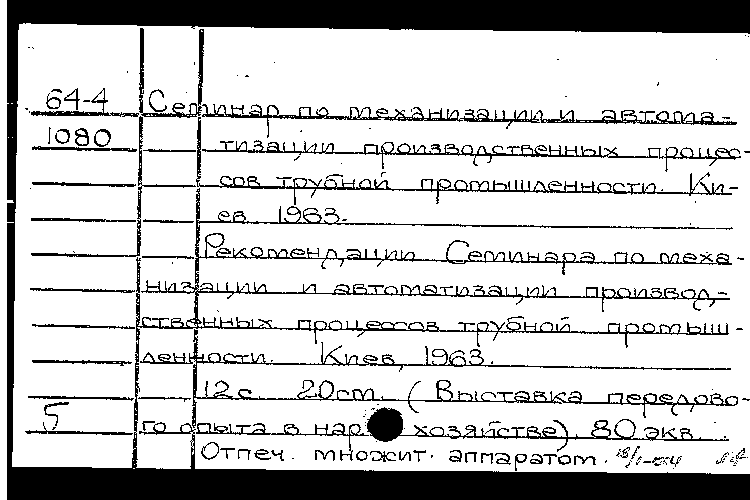 64-4 Семинар по механизации и автома-
1080 тизации производственных процес-
сов трубной промышленности. Ки-
ев. 1963.
Рекомендации Семинара по меха-
низации и автоматизации производ-
ственных процессов трубной промыш-
ленности. Киев, 1963.
12 с. 20 cm. (Выставка передово-
5 го опыта в нар. хозяйстве). 80 экз.
Отпеч. множит. аппаратом.